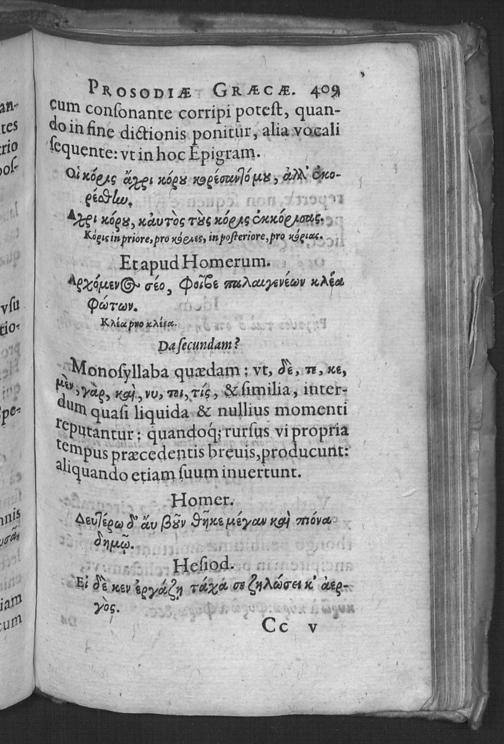 PROSODIÆ GRÆCÆ. 409
cum conſonante corripi poteſt, quan-
do in fine dictionis ponitur, alia vocali
ſequente: vt in hoc Epigram.
Οἱ κόρις ἄχρι κόρου κορέσαντό μου, ἀλλ' ἐκο-
ρέσθην,
Ἄχρι κόρου, καυτὸς τοὺς κόρις ἐκκόρισας.
Κόρις in priore, pro κόριες, in poſteriore, pro κόριας.
Et apud Homerum.
Ἀρχόμενος σέο, φοῖβε παλαιγενέων κλέα
φώτων.
Κλέα pro κλέεα.
Da ſecundam?
Monoſyllaba quædam: vt, δὲ, τε, κε,
μὲν, γὰρ, καὶ, νυ, τοι, τίς, & ſimilia, inter-
dum quaſi liquida & nullius momenti
reputantur: quandoq; rurſus vi propria
tempus præcedentis breuis, producunt:
aliquando etiam ſuum inuertunt.
Homer.
Δευτέρω δ' ἂυ βοῦν θῆκε μέγαν καὶ πίονα
δημῷ.
Heſiod.
Εἰ δὲ κεν ἐργάζη τάχά σε ζηλώσει κ' ἀερ-
γὸς.
Cc v
an-
tes
trio
poſ-
vſu
tio-
ſpe-
mnis
tiam
cum